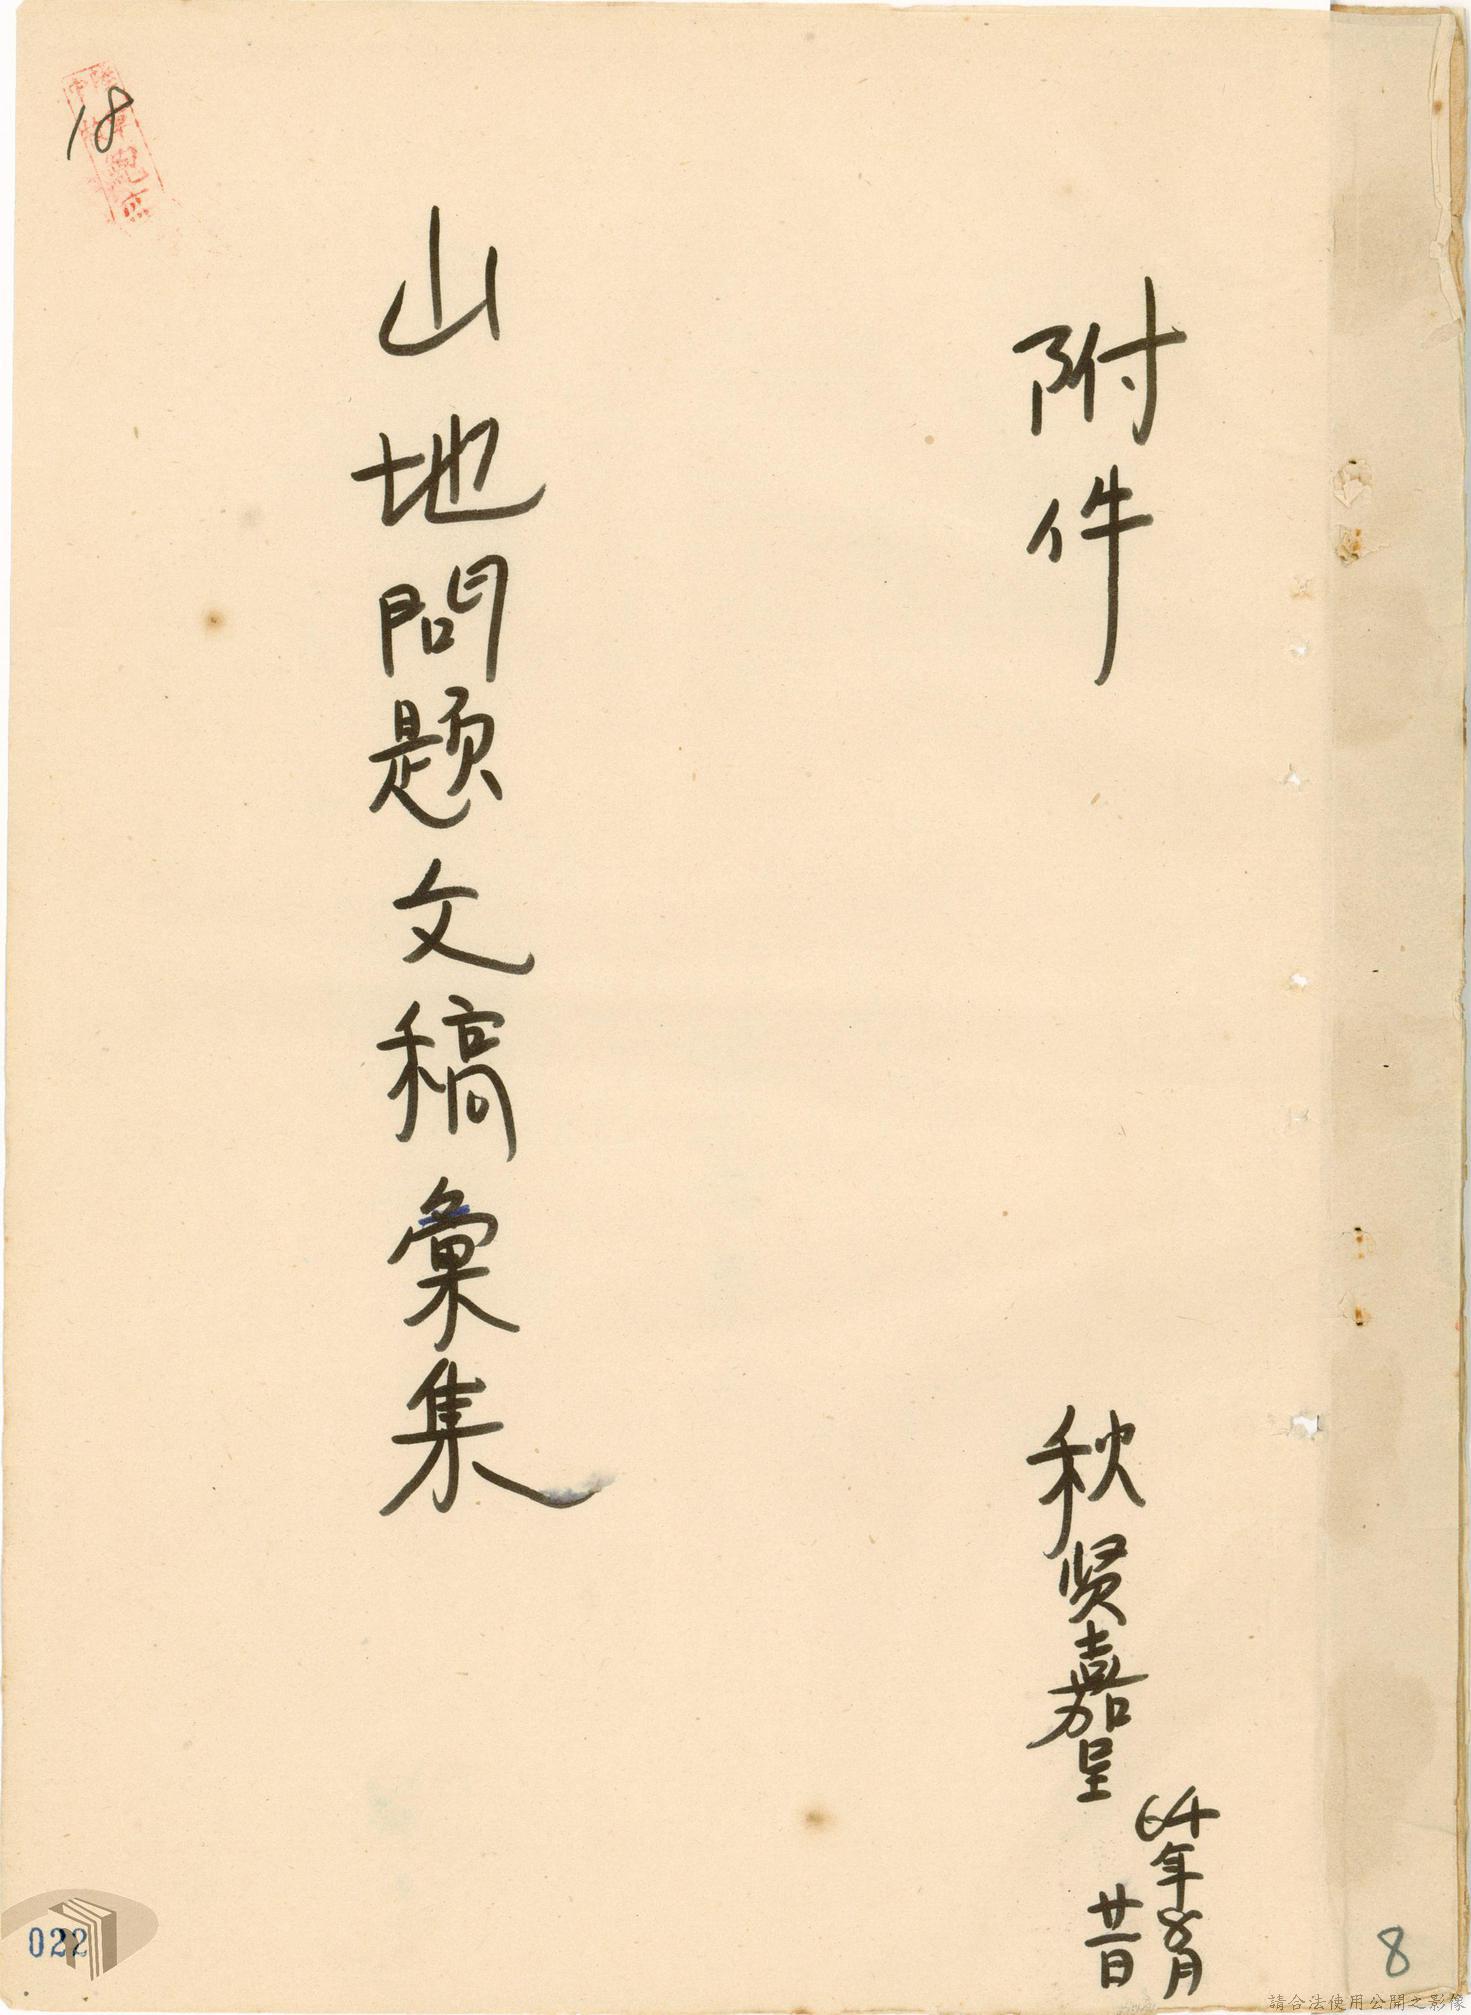 附件
秋贤嘉呈
64年8月
廿一日
山地問题文稿彙集
18
022
8
請合法使用公開之影像